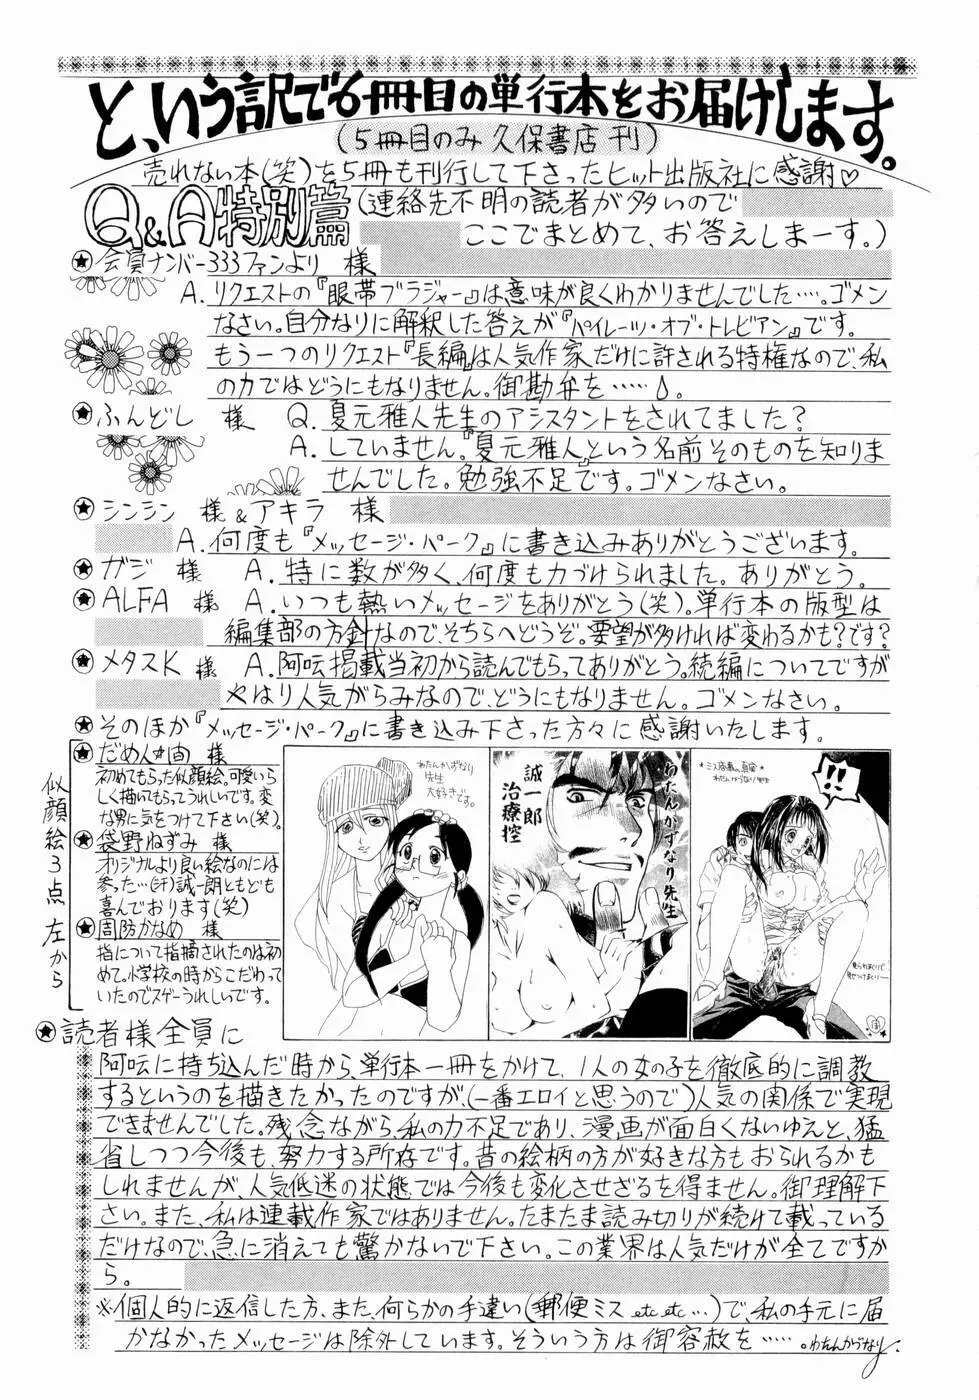 と、いう訳で6冊目の単行本をお届けします。
(5冊目のみ久保書店刊)
売れない本(笑)を5冊も刊行して下さったヒット出版社に感謝♡
Q&A特別篇
(連絡先不明の読者が多いので
ここでまとめて、お答えしまーす。)
会員ナンバー333ファンより 様
A. リクエストの『眼帯ブラジャー』は意味が良くわかりませんでした‥‥。ゴメン
なさい。自分なりに解釈した答えが『パイレーツ・オブ・トレビアン』です。
もう一つのリクエスト『長編』は人気作家だけに許される特権なので、私
の力ではどうにもなりません。御勘弁を‥‥‥。
ふんどし 様 Q. 夏元雅人先生のアシスタントをされてました?
A. していません。『夏元雅人』という名前そのものを知りま
せんでした。勉強不足です。ゴメンなさい。
シンシン 様&アキラ 様
A. 何度も『メッセージ・パーク』に書き込みありがとうございます。
ガジ 様 A. 特に数が多く、何度も力づけられました。ありがとう。
ALFA 様 A. いつも熱いメッセージをありがとう(笑)。単行本の版型は
編集部の方針なので、そちらへどうぞ。要望が多ければ変わるかも?です?
メタスK 様 A. 阿吽掲載当初から読んでもらってありがとう。続編についてですが
やはり人気がらみなので、どうにもなりません。ゴメンなさい。
そのほか『メッセージ・パーク』に書き込み下さった方々に感謝いたします。
似顔絵3点 左から
だめ人間 様
初めてもらった似顔絵。可愛いら
しく描いてもらってうれしいです。変
な男に気をつけて下さい(笑)。
袋野ねずみ 様
オリジナルより良い絵なのには
参った…(汗)誠一朗ともども
喜んでおります(笑)
周防かなめ 様
指について指摘されたのは初
めて。小学校の時からこだわっ
ていたのでスゲーうれしいです。
わたんかずなり
先生
大好きです。
誠一郎
治療控
わたんかずなり先生
わたんかずなり先生
!!
見られまくりで、
見せつけまくりー
読者様全員に
阿吽に持ち込んだ時から、単行本一冊をかけて、1人の女の子を徹底的に調教
するというのを描きたかったのですが、(一番エロイと思うので)人気の関係で実現
できませんでした。残念ながら、私の力不足であり、漫画が面白くないゆえと、猛
省しつつ今後も、努力する所存です。昔の絵柄の方が好きな方もおられるかも
しれませんが、人気低迷の状態では今後も変化させざるを得ません。御理解下
さい。また、私は連載作家ではありません。たまたま読み切りが続けて載っている
だけなので、急に消えても驚かないで下さい。この業界は人気だけが全てですか
ら。
※個人的に返信した方、また、何らかの手違い(郵便ミス etc.etc…)で、私の手元に届
かなかったメッセージは除外しています。そういう方は御容赦を‥‥‥。わたんかづなり.